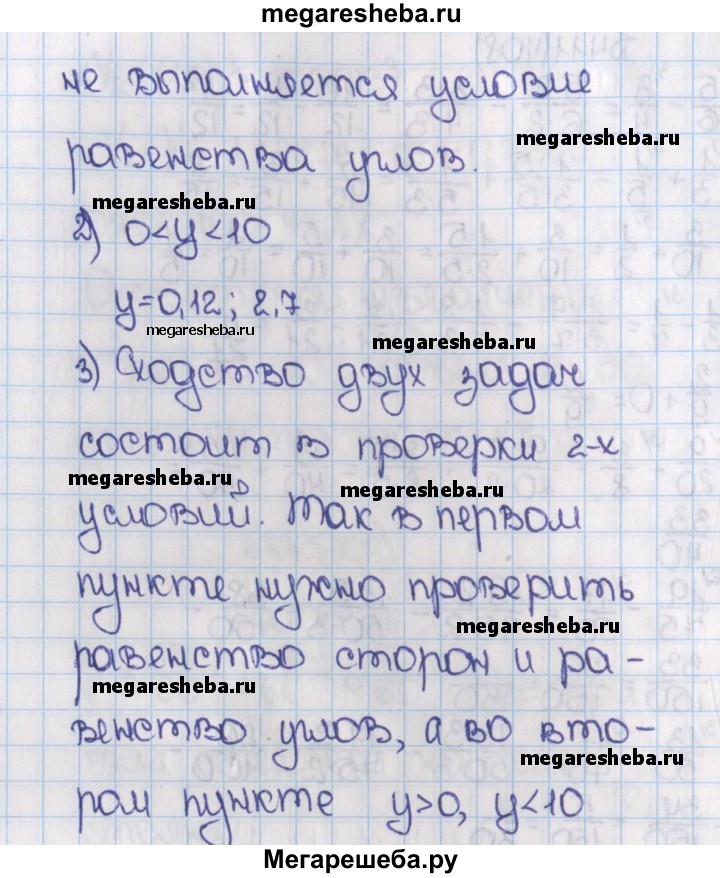 megaresheba.ru
не выполняется условие
megaresheba.ru
равенства углов.
megaresheba.ru
2) 0<y<10
y=0,12; 2,7
megaresheba.ru
megaresheba.ru
3) Сходство двух задач
состоит в проверки 2-х
megaresheba.ru
megaresheba.ru
условий. Так в первом
пункте нужно проверить
megaresheba.ru
равенство сторон и ра-
megaresheba.ru
венство углов, а во вто-
megaresheba.ru
ром пункте y>0, y<10
Мегарешеба.ру